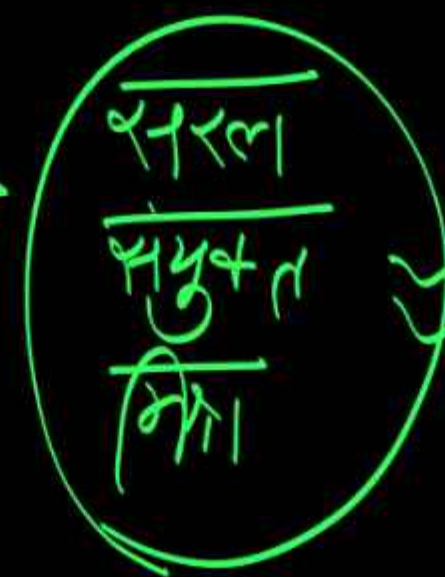 सरल
संयुक्त
मिश्र